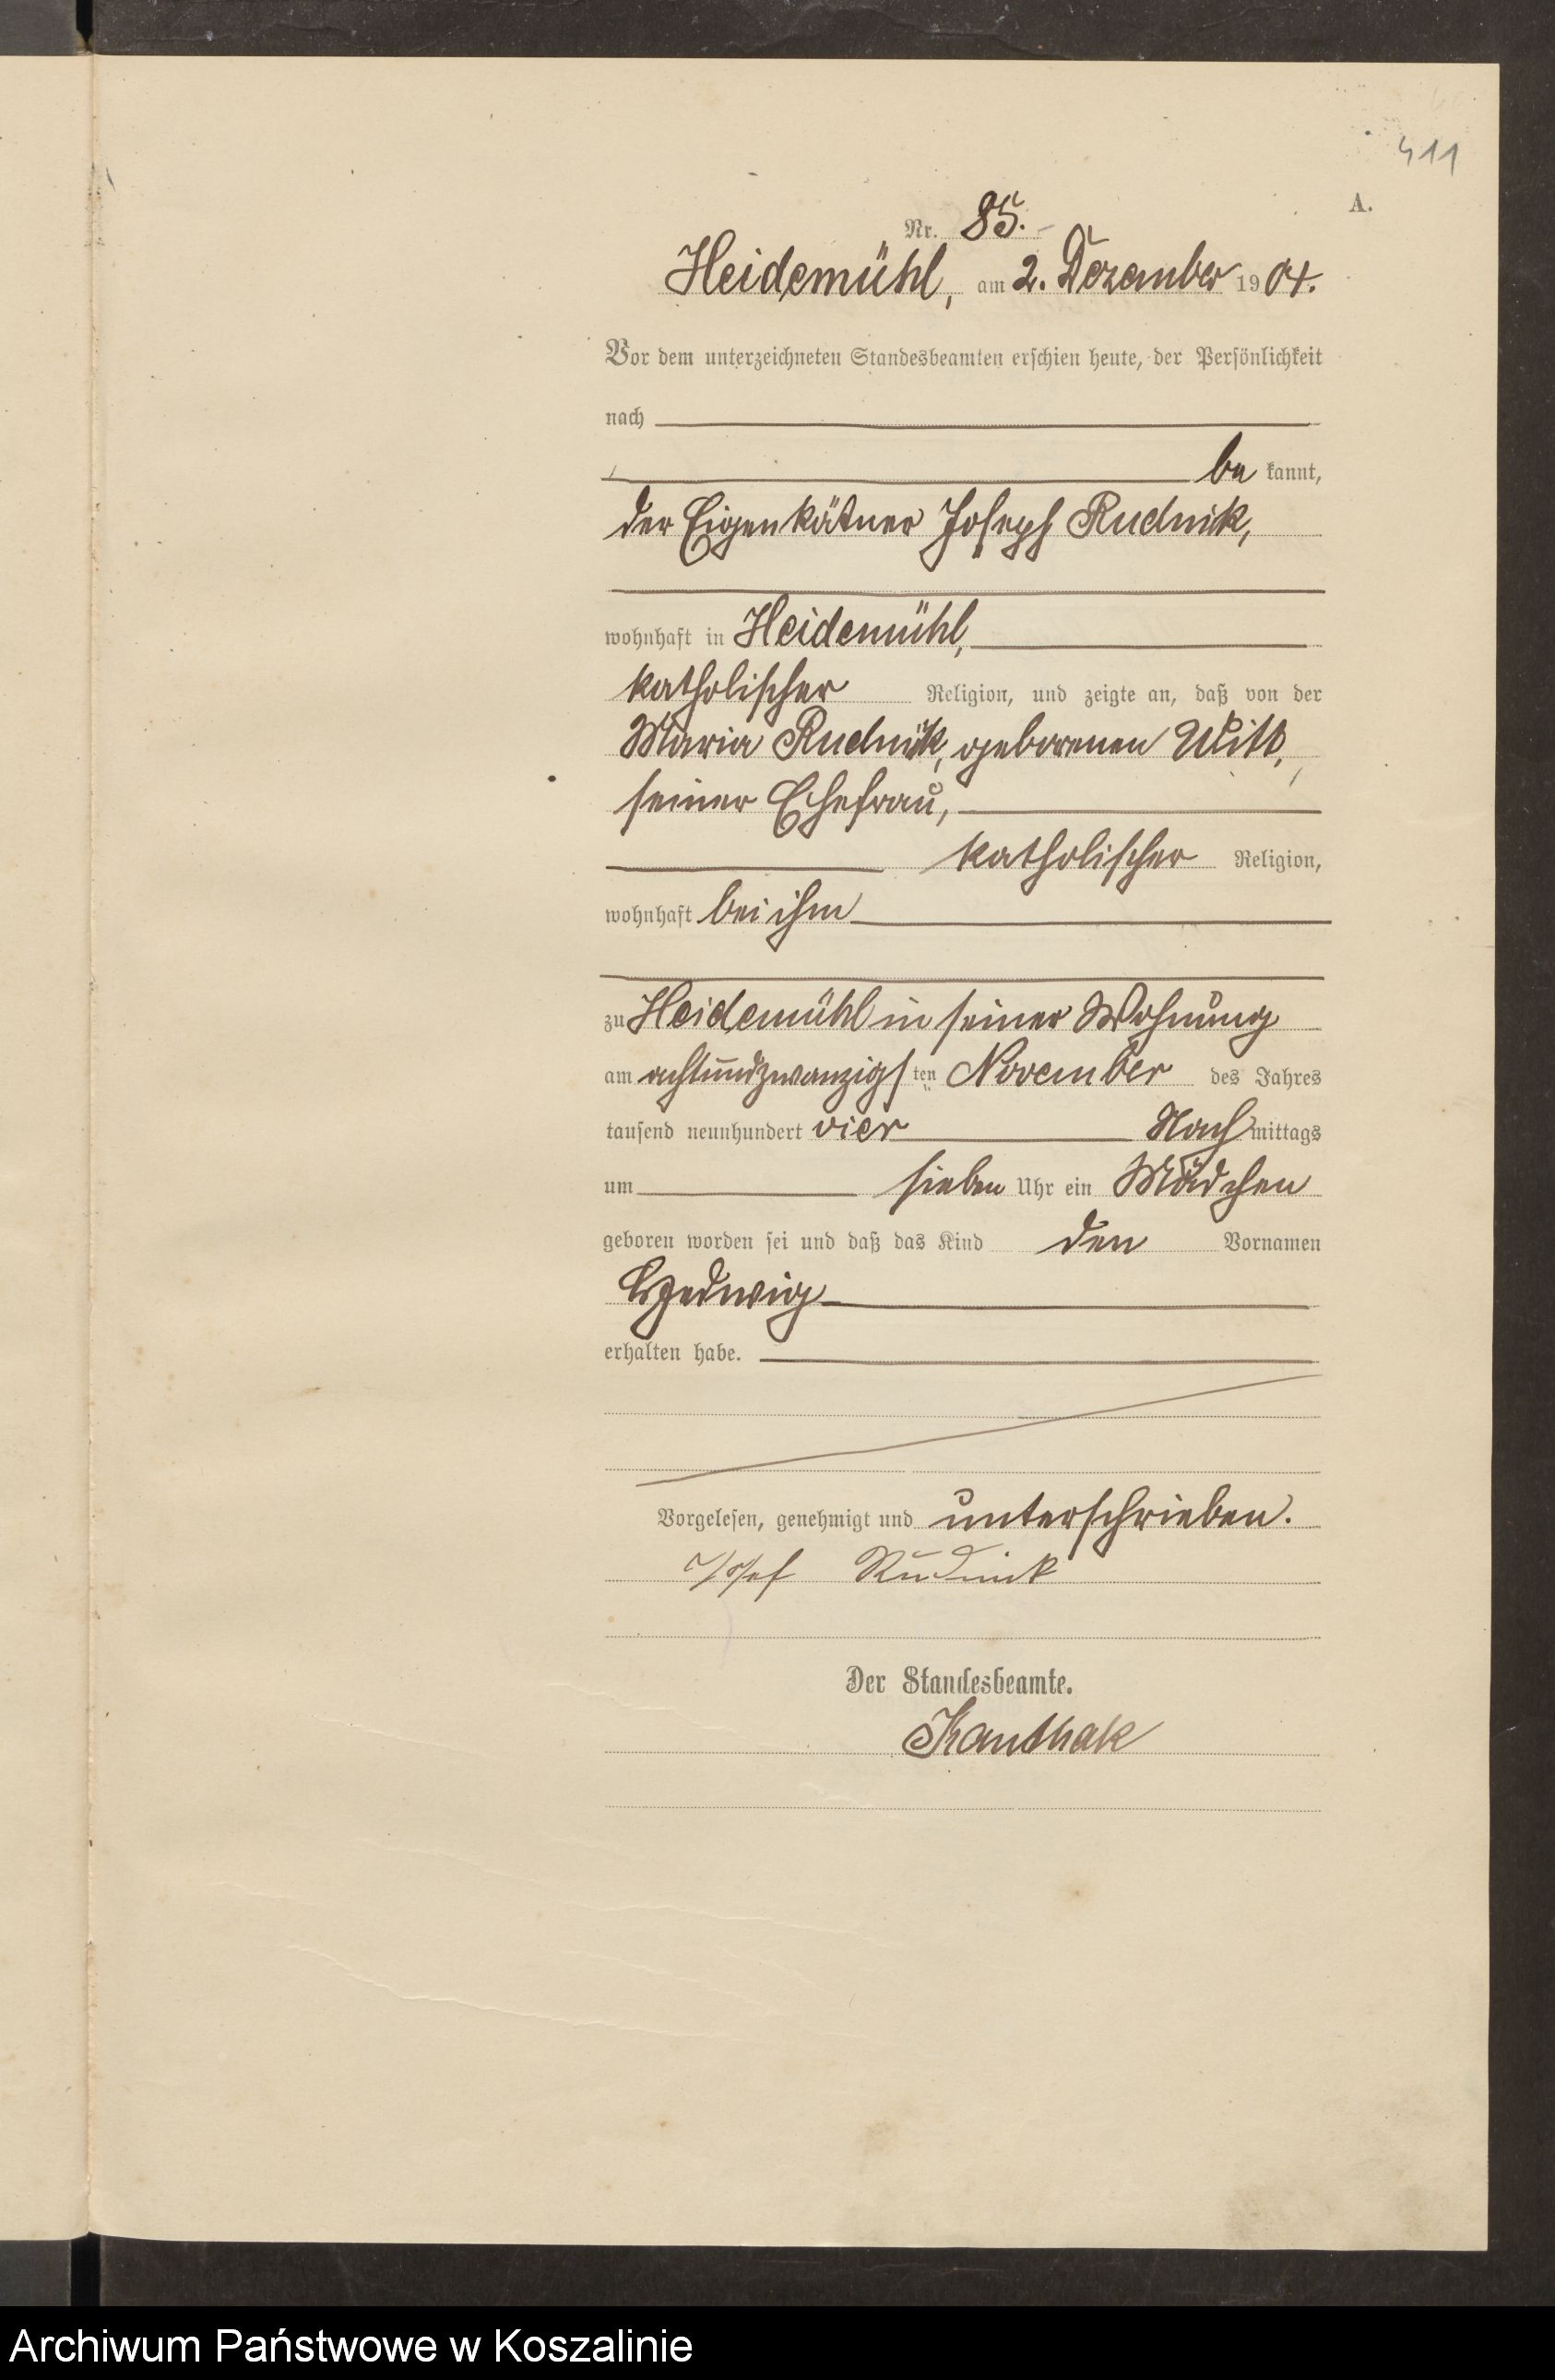 411
A.
Nr. 85.
Heidemühl, am 2. Dezember 1904.
Vor dem unterzeichneten Standesbeamten erschien heute, der Persönlichkeit
nach
be kannt,
der Eigenkätner Joseph Rudnik,
wohnhaft in Heidemühl,
katholischer Religion, und zeigte an, daß von der
Maria Rudnik, geborenen Witt,
seiner Ehefrau,
katholischer Religion,
wohnhaft bei ihm
zu Heidemühl in seiner Wohnung
am achtundzwanzigsten November des Jahres
tausend neunhundert vier Nachmittags
um sieben Uhr ein Mädchen
geboren worden sei und daß das Kind den Vornamen
Hedwig
erhalten habe.
Vorgelesen, genehmigt und unterschrieben.
Josef Rudnik
Der Standesbeamte.
Kanthak
Archiwum Państwowe w Koszalinie